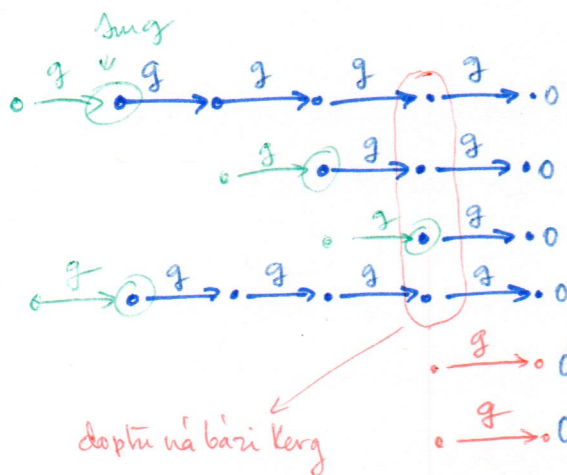 Im g
g g g g g 0
g g g 0
g g 0
g g g g g 0
g 0
g 0
na bázi Ker g